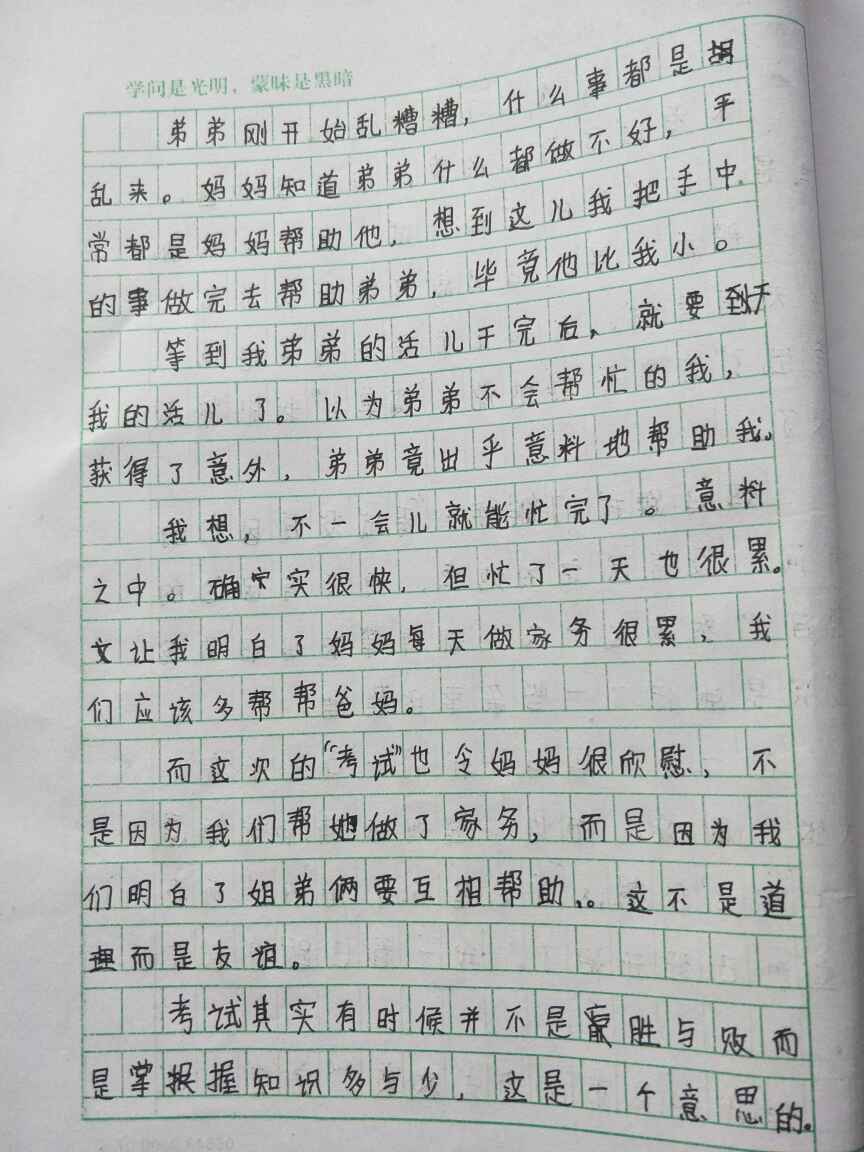 学问是光明，蒙昧是黑暗
弟弟刚开始乱糟糟，什么事都是胡
乱来。妈妈知道弟弟什么都做不好，平
常都是妈妈帮助他，想到这儿我把手中
的事做完去帮助弟弟，毕竟他比我小。
等到我弟弟的活儿干完后，就要到干
我的活儿了。以为弟弟不会帮忙的我，
获得了意外，弟弟竟出乎意料地帮助我。
我想，不一会儿就能忙完了。意料
之中。确实很快，但忙了一天也很累。
让我明白了妈妈每天做家务很累，我
们应该多帮帮爸妈。
而这次的“考试”也令妈妈很欣慰，不
是因为我们帮她做了家务，而是因为我
们明白了姐弟俩要互相帮助、。这不是道
理而是友谊。
考试其实有时候并不是胜与败而
是掌握知识多与少，这是一个意思的。